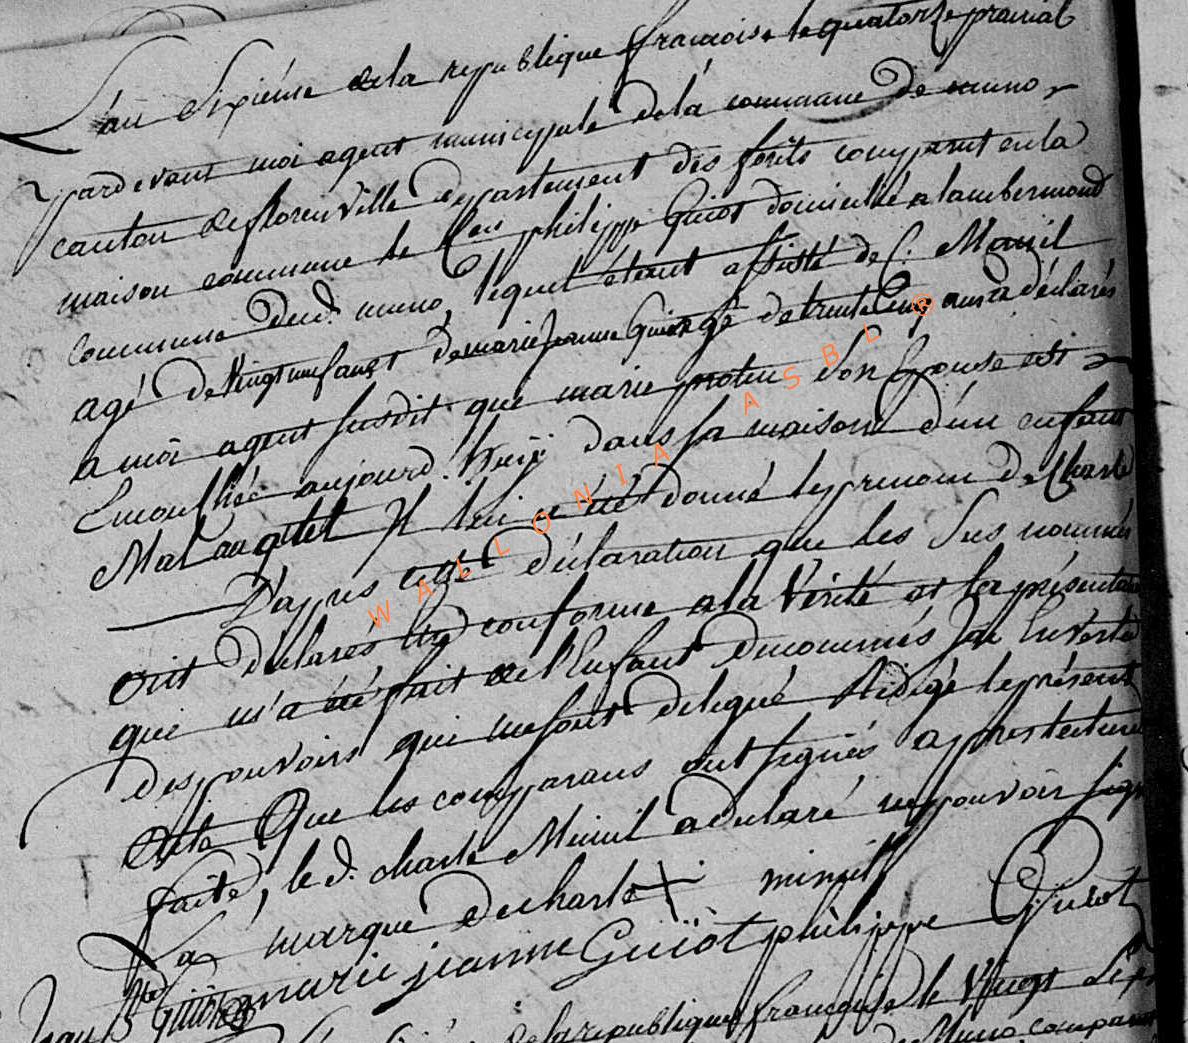 L'an Sixiéme de la republique francoise le quatorze prairial
pardevant moi agent municipale de la commune de muno
canton de florenville departement des forêts comparut en la
maison commune le Cen philippe Guiot domicillié a lambermond
commune dud. muno, lequel étant assisté de C. Menil
agé de Vingt neuf ans et de marie Jeanne Guiot agé de trente cinq ans a déclarés
a moi agent susdit que marie son Epouse est
accouchée aujourd'huy dans sa maison d'un enfant
Mal auquel Il lui a été donné les prenom de Charle
D'apres cette déclaration que les Sus nommés
ont déclarés conforme a la Vérité et la présentation
qui m'a été fait de l'Enfant denommés Jai En Vertu
des pouvoirs qui me sont délégué Rédigé le présent
acte Que les comparans ont signés apres lecture
faite, le d. charle Minil a declaré ne pouvoir signer
La marque de charle minil
marie jeanne Guiöt philippe Guiot
Jean Guiöt
de la republique françoise le Vingt Sept
Muno comparut
WALLONIA ASBL ®